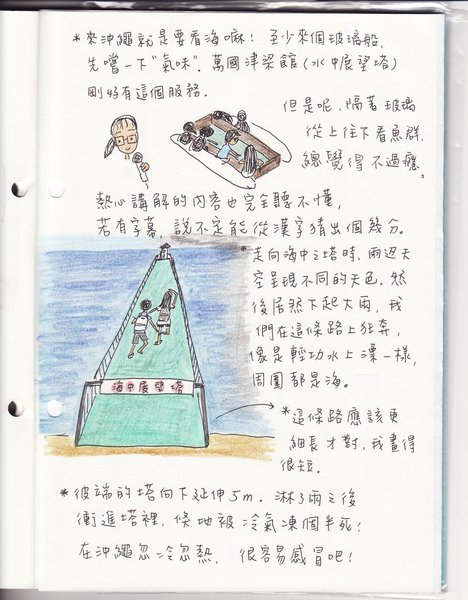 *來沖繩就是要看海嘛！至少來個玻璃船,
先嚐一下"氣味". 萬國津梁館(水中展望塔)
剛好有這個服務.
但是呢, 隔著玻璃
從上往下看魚群.
總覺得不過癮。
熱心講解的內容也完全聽不懂,
若有字幕, 說不定能從漢字猜出個幾分.
*走向海中之塔時. 兩邊天
空呈現不同的天色. 然
後居然下起大雨, 我
們在這條路上狂奔,
像是輕功水上漂一樣,
周圍都是海。
海中展望塔
*這條路應該更
細長才對, 我畫得
很短.
*彼端的塔向下延伸5m. 淋了雨之後
衝進塔裡, 倏地被冷氣凍個半死!
在沖繩忽冷忽熱, 很容易感冒吧!